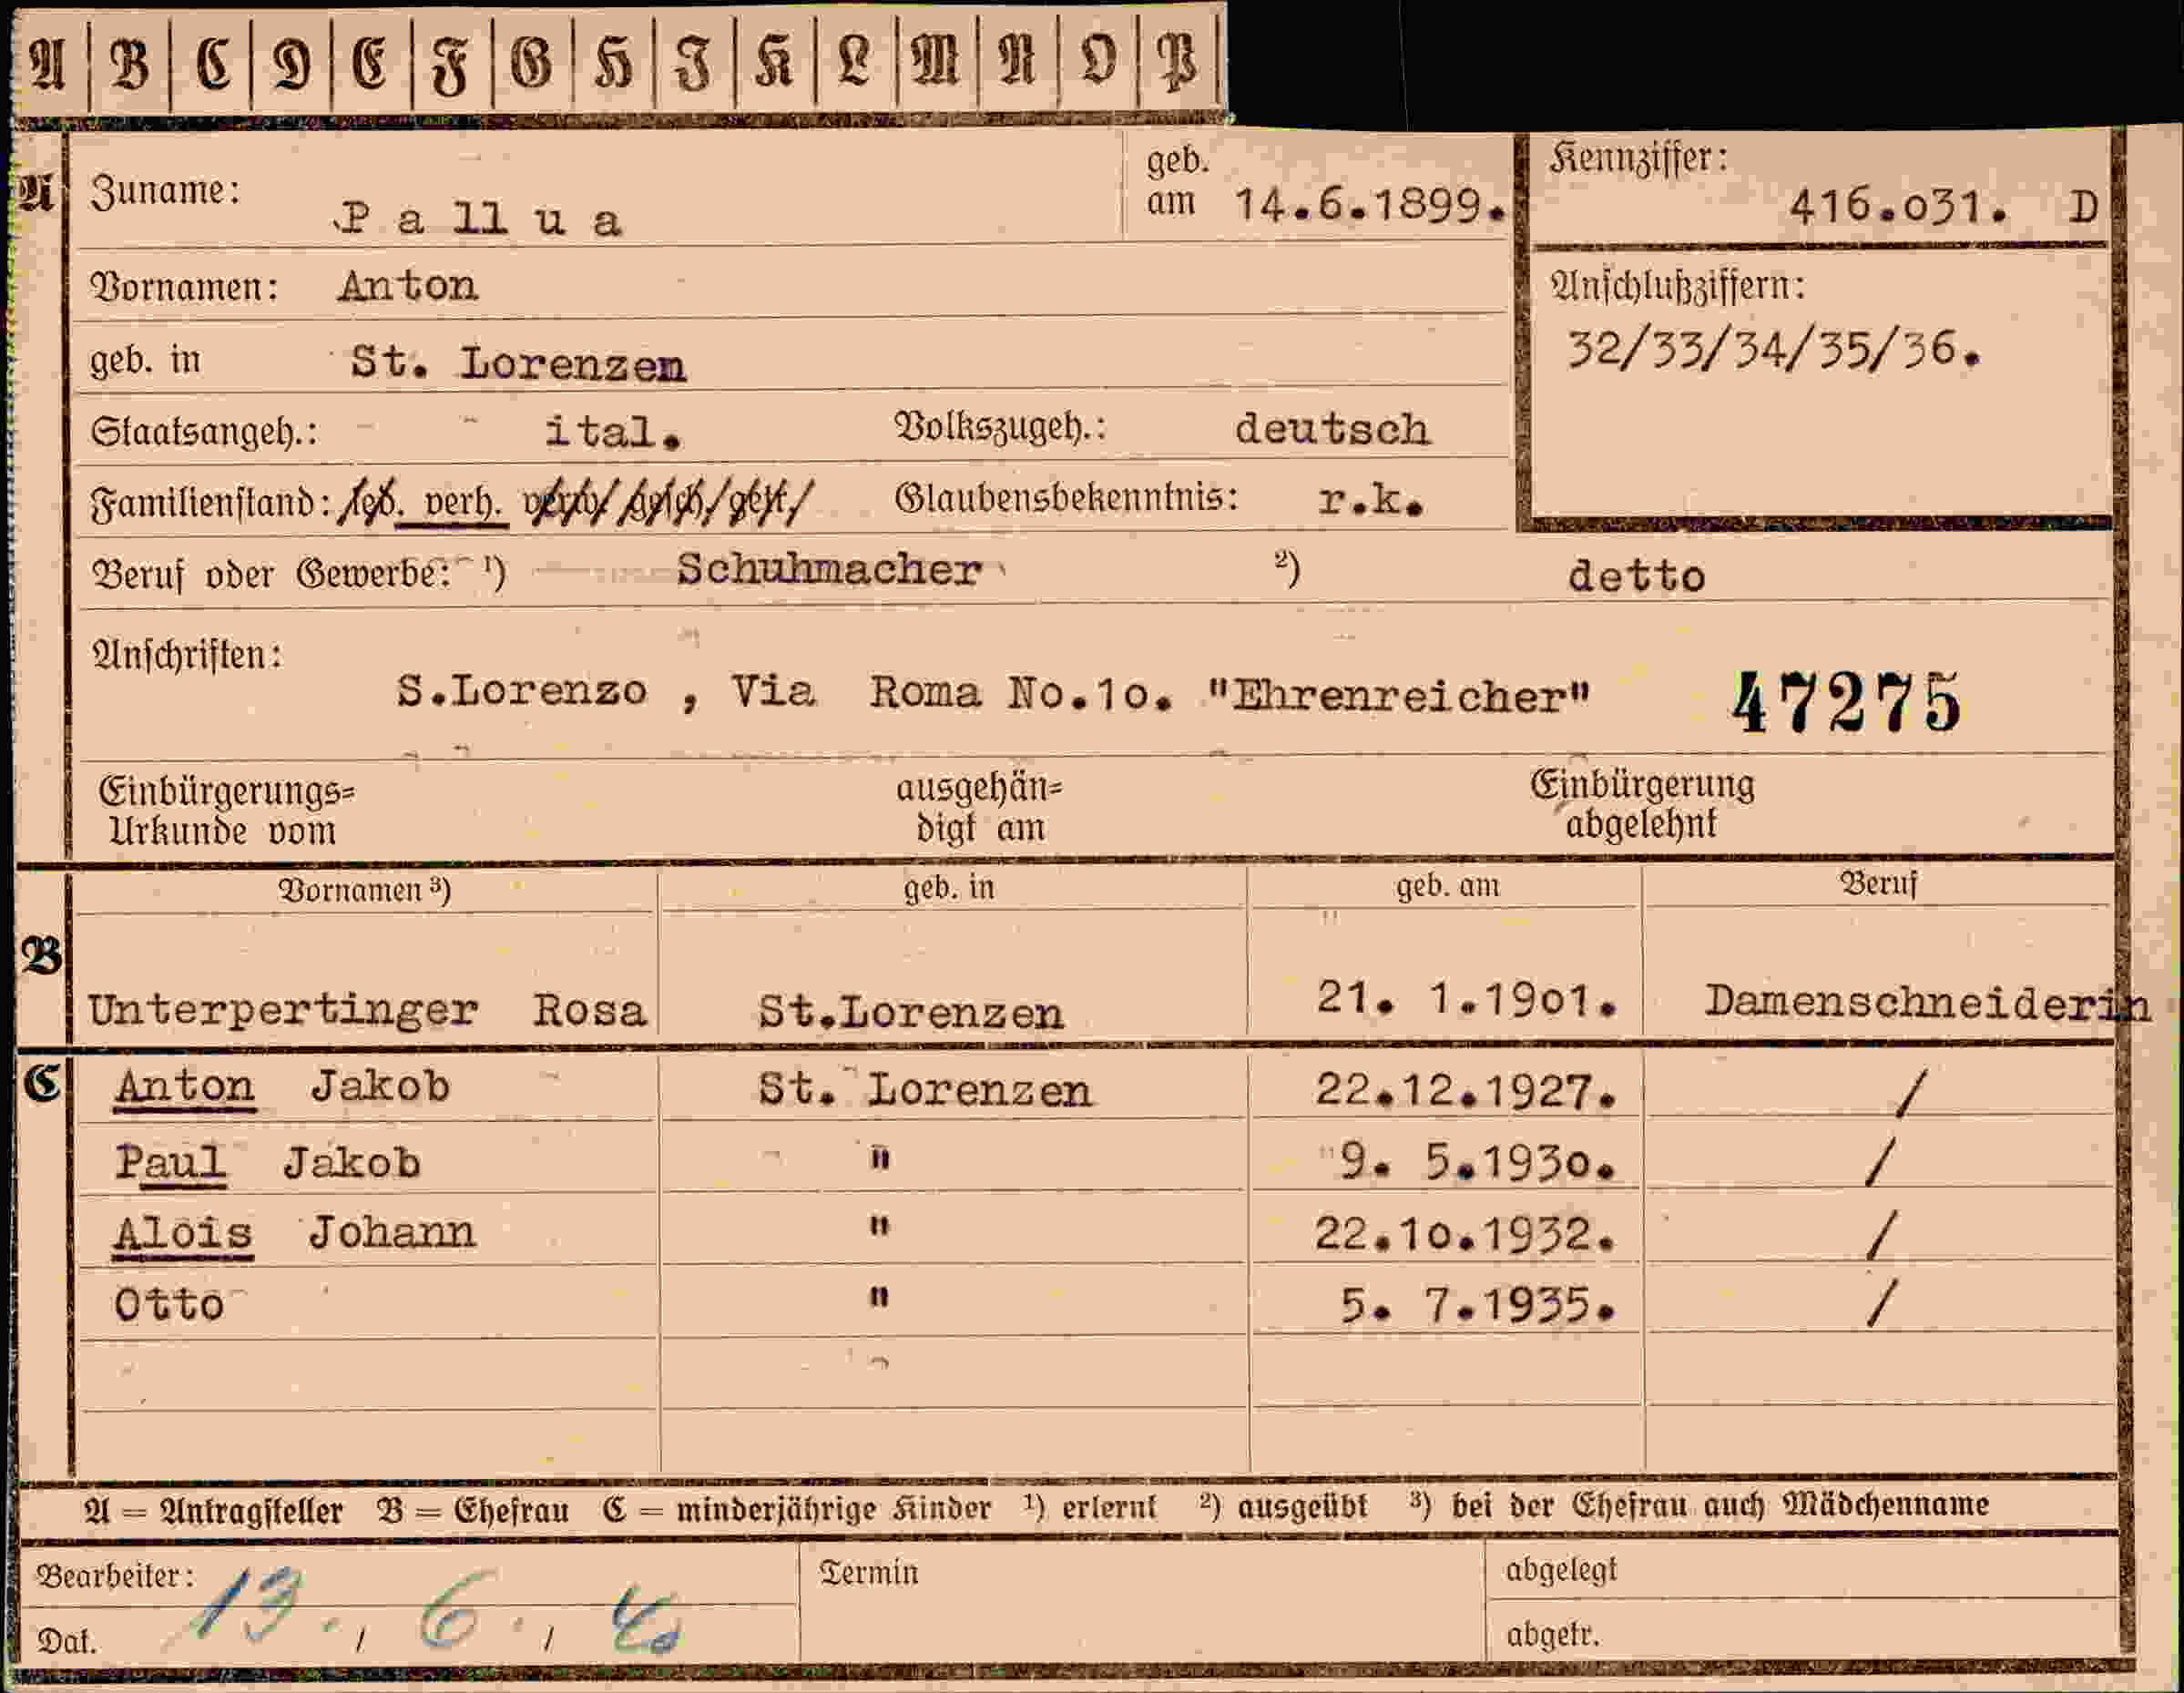 A B C D E F G H I K L M N O P
A Zuname: Pallua geb. am 14.6.1899. Kennziffer: 416.o31. D
Vornamen: Anton Anschlußziffern:
geb. in St. Lorenzen 32/33/34/35/36.
Staatsangeh.: ital. Volkszugeh.: deutsch
Familienstand: led. verh. verw. gesch. getr. Glaubensbekenntnis: r.k.
Beruf oder Gewerbe: ¹) Schuhmacher ²) detto
Anschriften:
S.Lorenzo , Via Roma No.1o. "Ehrenreicher" 47275
Einbürgerungs= ausgehän= Einbürgerung
Urkunde vom digt am abgelehnt
Vornamen ³) geb. in geb. am Beruf
B
Unterpertinger Rosa St.Lorenzen 21. 1.19o1. Damenschneiderin
C Anton Jakob St. Lorenzen 22.12.1927. /
Paul Jakob " 9. 5.193o. /
Alois Johann " 22.1o.1932. /
Otto " 5. 7.1935. /
A = Antragsteller B = Ehefrau C = minderjährige Kinder ¹) erlernt ²) ausgeübt ³) bei der Ehefrau auch Mädchenname
Bearbeiter: Termin abgelegt
Dat. 13. / 6. / 40 abgetr.